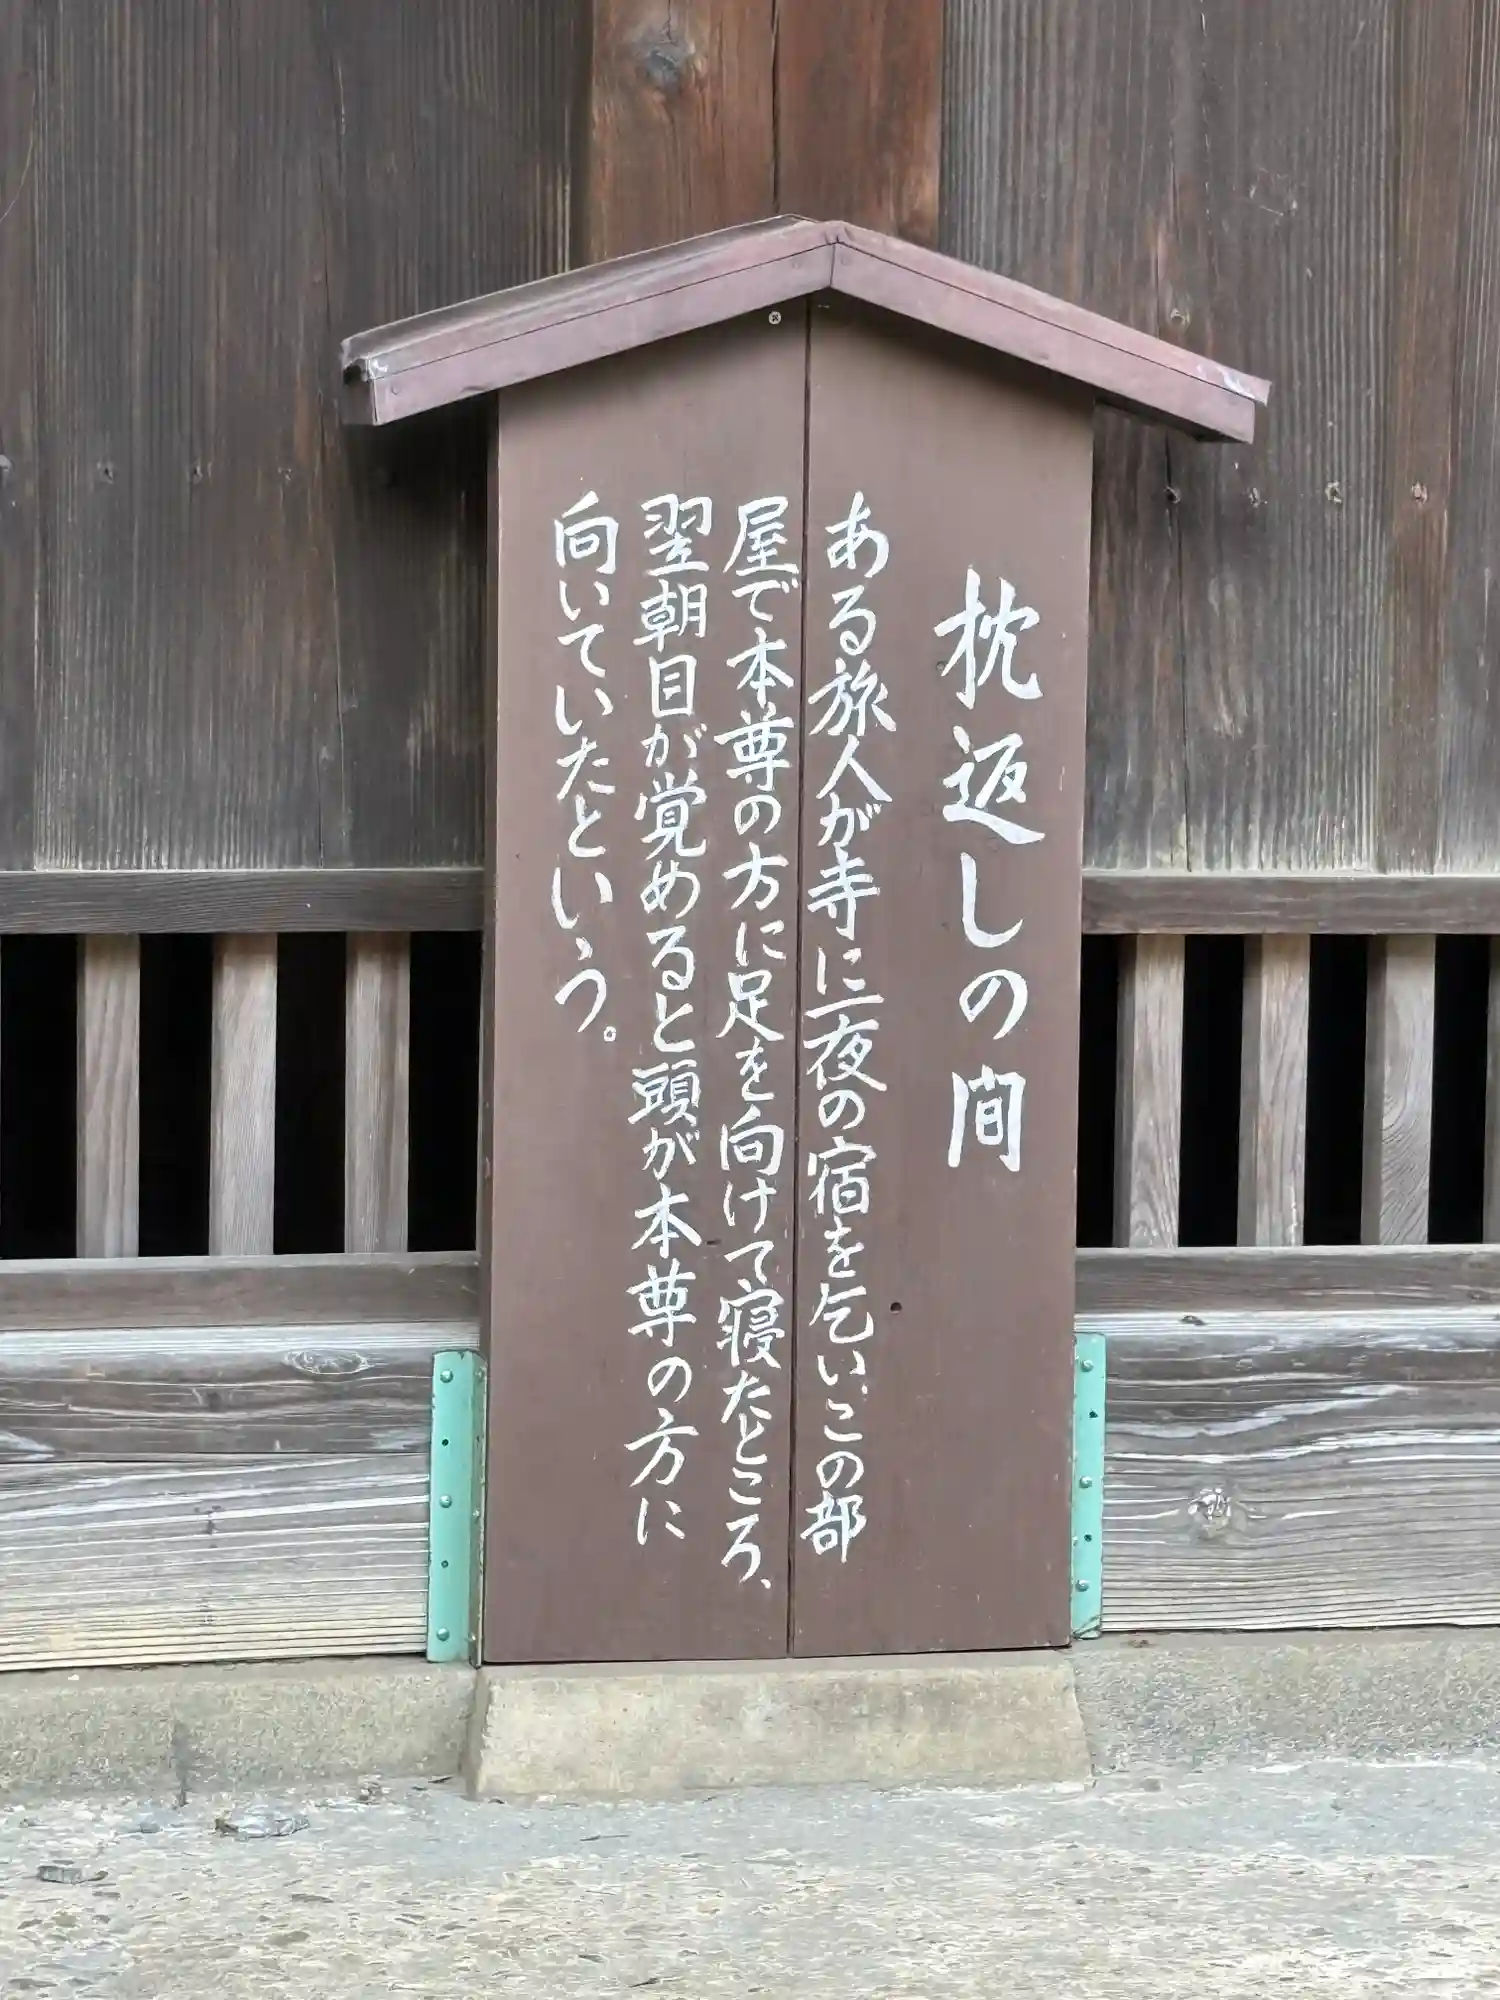 枕返しの間
ある旅人が寺に一夜の宿を乞い、この部
屋で本尊の方に足を向けて寝たところ、
翌朝目が覚めると頭が本尊の方に
向いていたという。